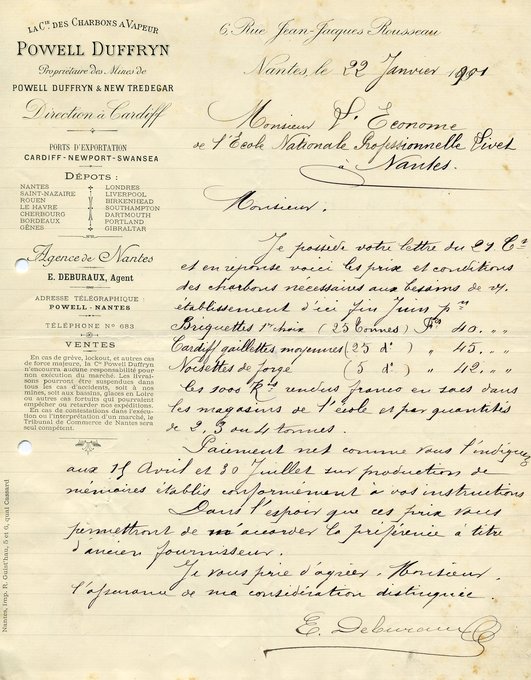 LA Cie DES CHARBONS A VAPEUR
POWELL DUFFRYN
Propriétaire des Mines de
POWELL DUFFRYN & NEW TREDEGAR
Direction à Cardiff
PORTS D'EXPORTATION
CARDIFF - NEWPORT - SWANSEA
DÉPOTS :
NANTES LONDRES
SAINT-NAZAIRE LIVERPOOL
ROUEN BIRKENHEAD
LE HAVRE SOUTHAMPTON
CHERBOURG DARTMOUTH
BORDEAUX PORTLAND
GÊNES GIBRALTAR
Agence de Nantes
E. DEBURAUX, Agent
ADRESSE TÉLÉGRAPHIQUE :
POWELL - NANTES
TÉLÉPHONE No 683
VENTES
En cas de grève, lockout, et autres cas
de force majeure, la Cie Powell Duffryn
n'encourra aucune responsabilité pour
non exécution du marché. Les livrai-
sons pourront être suspendues dans
tous les cas d'accidents, soit à nos
mines, soit aux bassins, glaces en Loire
ou autres cas fortuits qui pourraient
empêcher ou retarder nos expéditions.
En cas de contestations dans l'exécu-
tion ou l'interprétation d'un marché, le
Tribunal de Commerce de Nantes sera
seul compétent.
Nantes, Imp. R. Guist'hau, 5 et 6, quai Cassard
6, Rue Jean-Jacques Rousseau
Nantes, le 22 Janvier 1901
Monsieur l'Econome
de l'École Nationale Professionnelle Livet
à Nantes.
Monsieur.
Je possède votre lettre du 21 Ct
et en réponse voici les prix et conditions
des charbons necessaires aux besoins de v/.
établissement d'ici fin Juin pn
Briquettes 1er choix (25 tonnes) Frs 40. " "
Cardiff gaillettes moyennes (25 do) " 45. " "
Noisettes de forge (5 do) " 42. " "
les 1000 Ks rendus franco en sacs dans
les magasins de l'école et par quantités
de 2, 3 ou 4 tonnes.
Paiement net comme vous l'indiquez
aux 15 Avril et 30 Juillet sur production de
mémoires établis conformément à vos instructions
Dans l'espoir que ces prix vous
permettront de m'accorder la préférence à titre
d'ancien fournisseur.
Je vous prie d'agréer, Monsieur,
l'assurance de ma considération distinguée
E. Deburaux